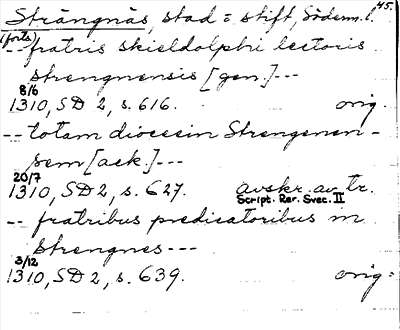 Strängnäs, stad o. stift, Söderm. l. 45.
(forts)
-- fratris skieldolphi lectoris
strengnensis [gen.] ---
8/6
1310, SD 2, s. 616. orig.
-- totam diocesin Strengenen-
sem [ack.] ---
20/7
1310, SD 2, s. 627. avskr. av tr.
Script. Rer. Svec. II
-- fratribus predicatoribus in
strengnes ---
3/12
1310, SD 2, s. 639. orig.